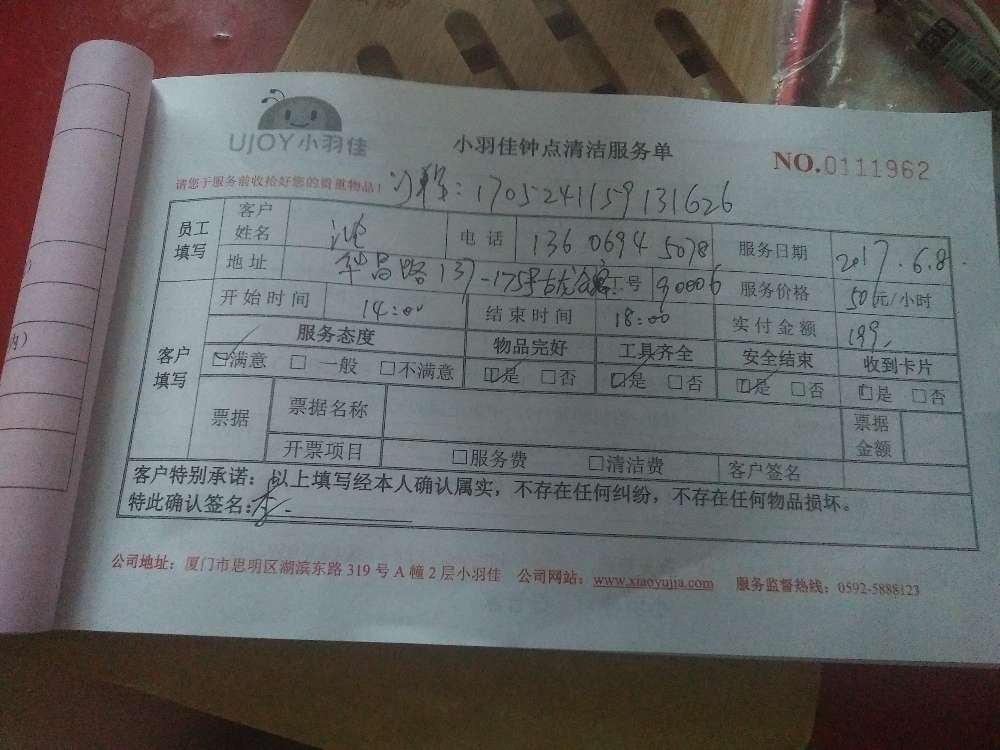 UJOY小羽佳
小羽佳钟点清洁服务单
NO.0111962
请您于服务前收拾好您的贵重物品！
: 1705241159131626
员工填写 客户姓名 电话 136 0694 5078 服务日期 2017.6.8.
地址 137-175号 工号 90006 服务价格 50元/小时
客户填写 开始时间 14:00 结束时间 18:00 实付金额 199
服务态度 物品完好 工具齐全 安全结束 收到卡片
☑满意 □一般 □不满意 ☑是 □否 ☑是 □否 ☑是 □否 □是 □否
票据 票据名称 票据金额
开票项目 □服务费 □清洁费 客户签名
客户特别承诺：以上填写经本人确认属实，不存在任何纠纷，不存在任何物品损坏。
特此确认签名：
公司地址：厦门市思明区湖滨东路 319 号 A 幢 2 层小羽佳 公司网站：www.xiaoyujia.com 服务监督热线：0592-5888123